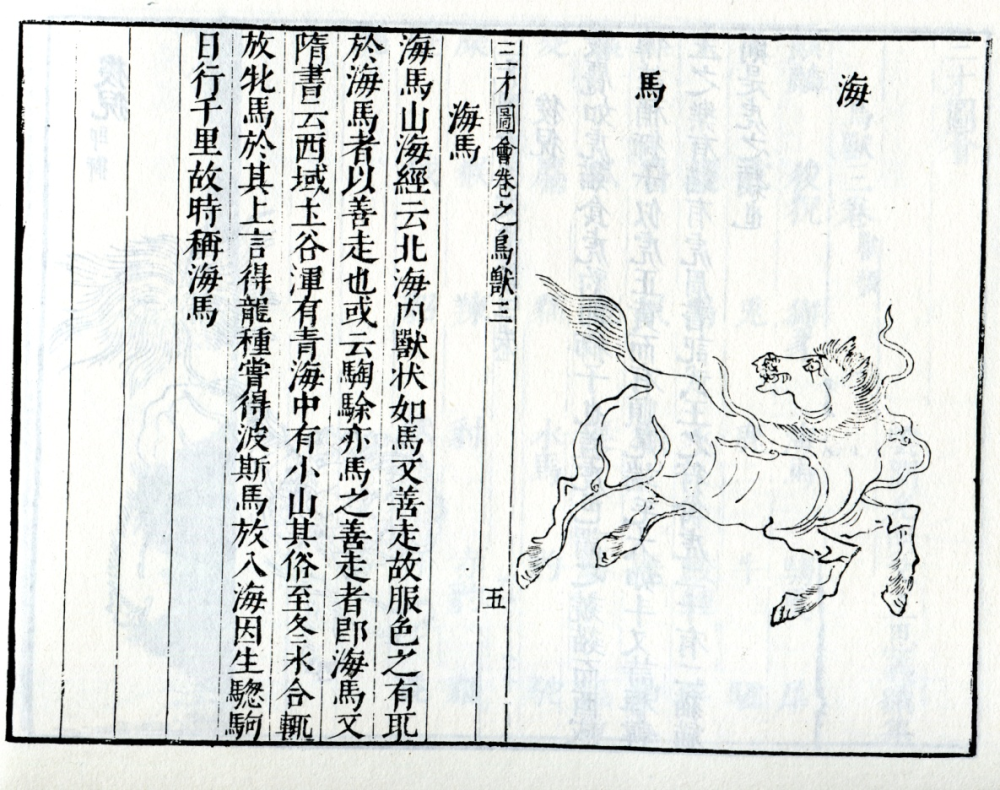 海馬
三才圖會卷之鳥獸三 五
海馬
海馬山海經云北海内獸状如馬又善走故服色之有取
於海馬者以善走也或云騊駼亦馬之善走者卽海馬又
隋書云西域土谷渾有青海中有小山其俗至冬氷合輒
放牝馬於其上言得龍種嘗得波斯馬放入海因生驄駒
日行千里故時稱海馬